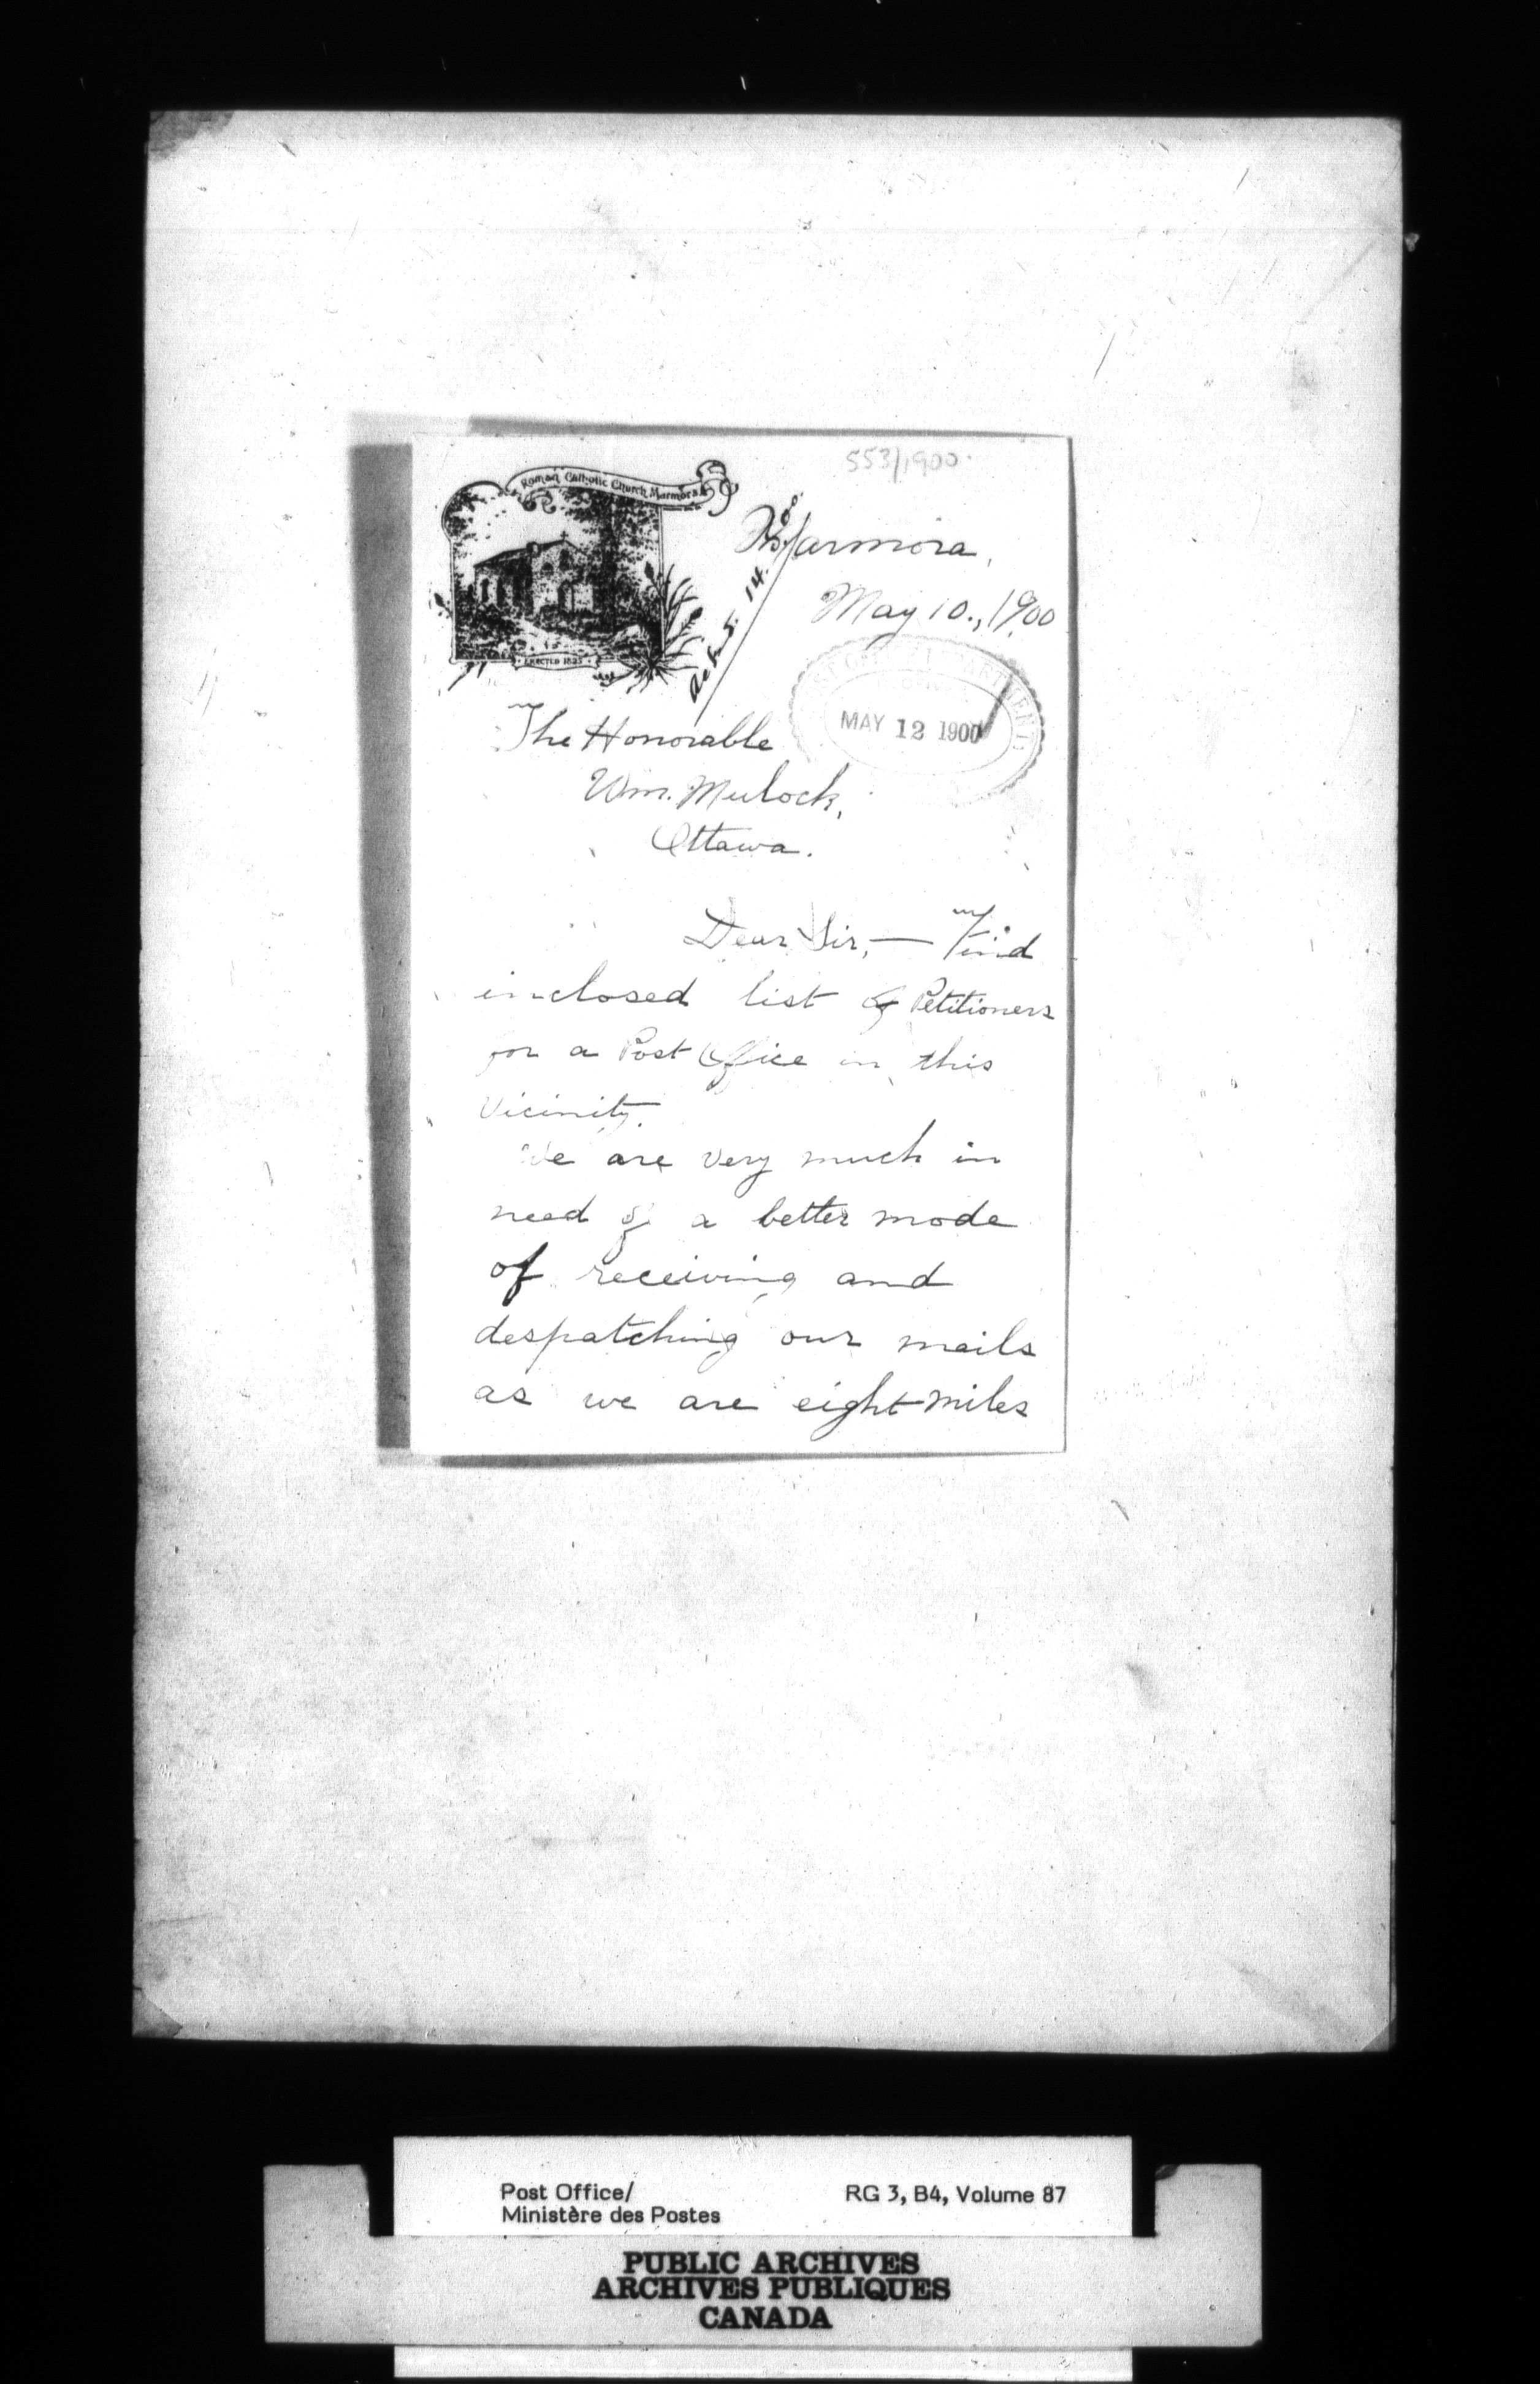 553/1900.
Roman Catholic Church Marmora
ERECTED 1825
Marmora,
May 10., 1900
14.
POST OFFICE DEPARTMENT
MAY 12 1900
The Honorable
Wm. Mulock,
Ottawa.
Dear Sir, — Find
inclosed list of Petitioners
for a Post Office in this
Vicinity.
We are very much in
need of a better mode
of receiving and
despatching our mails
as we are eight miles
Post Office/ RG 3, B4, Volume 87
Ministère des Postes
PUBLIC ARCHIVES
ARCHIVES PUBLIQUES
CANADA